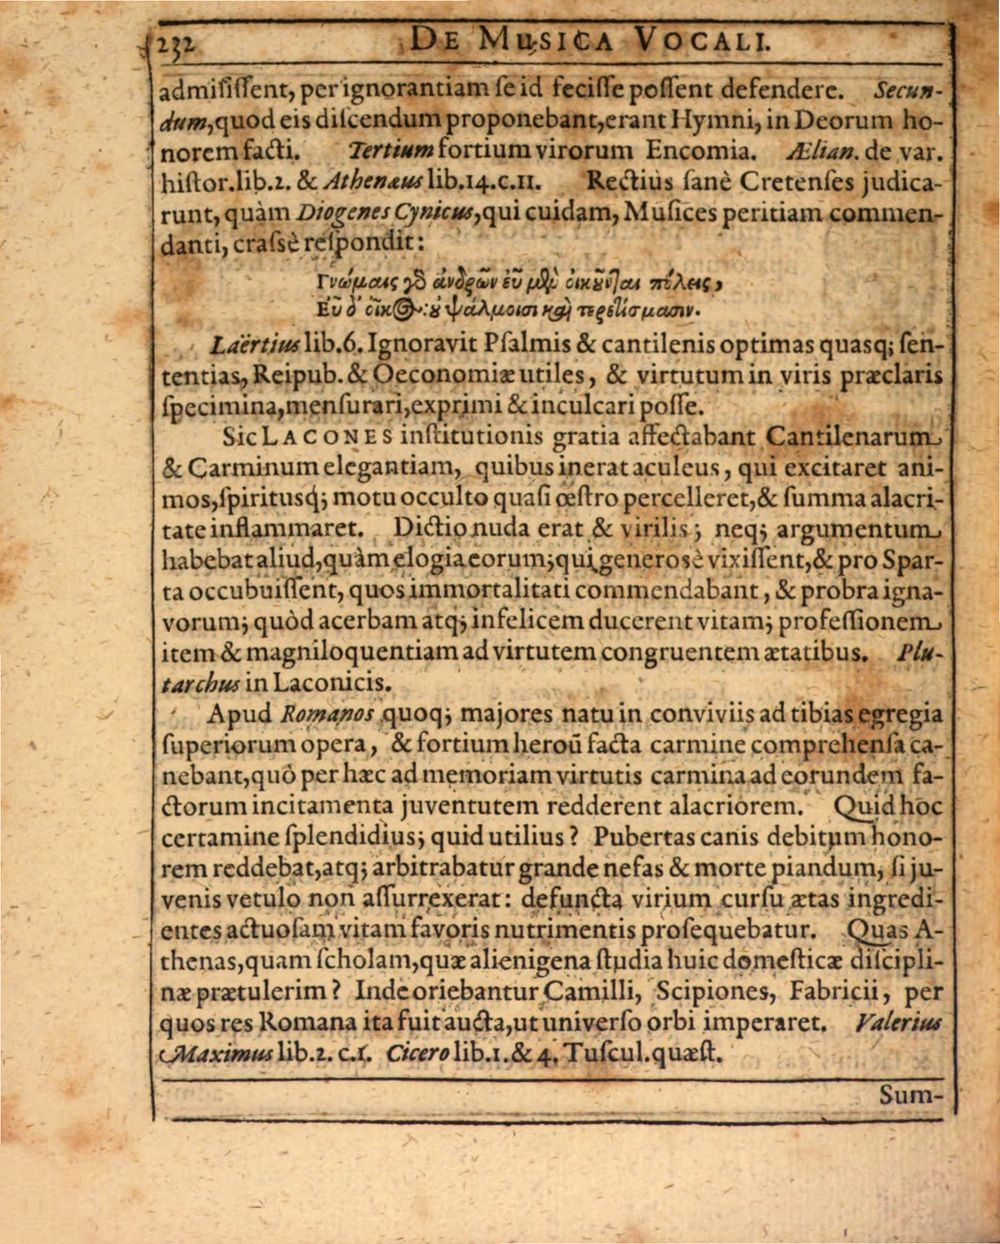 232 DE MUSICA VOCALI.
admisissent, per ignorantiam se id fecisse possent defendere. Secun-
dum, quod eis discendum proponebant, erant Hymni, in Deorum ho-
norem facti. Tertium fortium virorum Encomia. Ælian. de var.
histor. lib. 2. & Athenæus lib. 14. c. 11. Rectius sanè Cretenses judica-
runt, quàm Diogenes Cynicus, qui cuidam, Musices peritiam commen-
danti, crassè respondit:
Γνώμαις γὸ ἀνδρῶν εὖ μθὺ οἰκοῦνται πόλεις,
Εὖ δ' οἶκος: οὐ ψάλμοισι καὶ τερετίσμασιν.
Laërtius lib. 6. Ignoravit Psalmis & cantilenis optimas quasq; sen-
tentias, Reipub. & Oeconomiæ utiles, & virtutum in viris præclaris
specimina, mensurari, exprimi & inculcari posse.
Sic LACONES institutionis gratia affectabant Cantilenarum
& Carminum elegantiam, quibus inerat aculeus, qui excitaret ani-
mos, spiritusq; motu occulto quasi œstro percelleret, & summa alacri-
tate inflammaret. Dictio nuda erat & virilis; neq; argumentum
habebat aliud, quàm elogia eorum; qui generosè vixissent, & pro Spar-
ta occubuissent, quos immortalitati commendabant, & probra igna-
vorum; quòd acerbam atq; infelicem ducerent vitam; professionem
item & magniloquentiam ad virtutem congruentem ætatibus. Plu-
tarchus in Laconicis.
Apud Romanos quoq; majores natu in conviviis ad tibias egregia
superiorum opera, & fortium heroū facta carmine comprehensa ca-
nebant, quò per hæc ad memoriam virtutis carmina ad eorundem fa-
ctorum incitamenta juventutem redderent alacriorem. Quid hoc
certamine splendidius; quid utilius? Pubertas canis debitum hono-
rem reddebat, atq; arbitrabatur grande nefas & morte piandum, si ju-
venis vetulo non assurrexerat: defuncta virium cursu ætas ingredi-
entes actuosam vitam favoris nutrimentis prosequebatur. Quas A-
thenas, quam scholam, quæ alienigena studia huic domesticæ discipli-
næ prætulerim? Inde oriebantur Camilli, Scipiones, Fabricii, per
quos res Romana ita fuit aucta, ut universo orbi imperaret. Valerius
Maximus lib. 2. c. 1. Cicero lib. 1. & 4. Tuscul. quæst.
Sum-